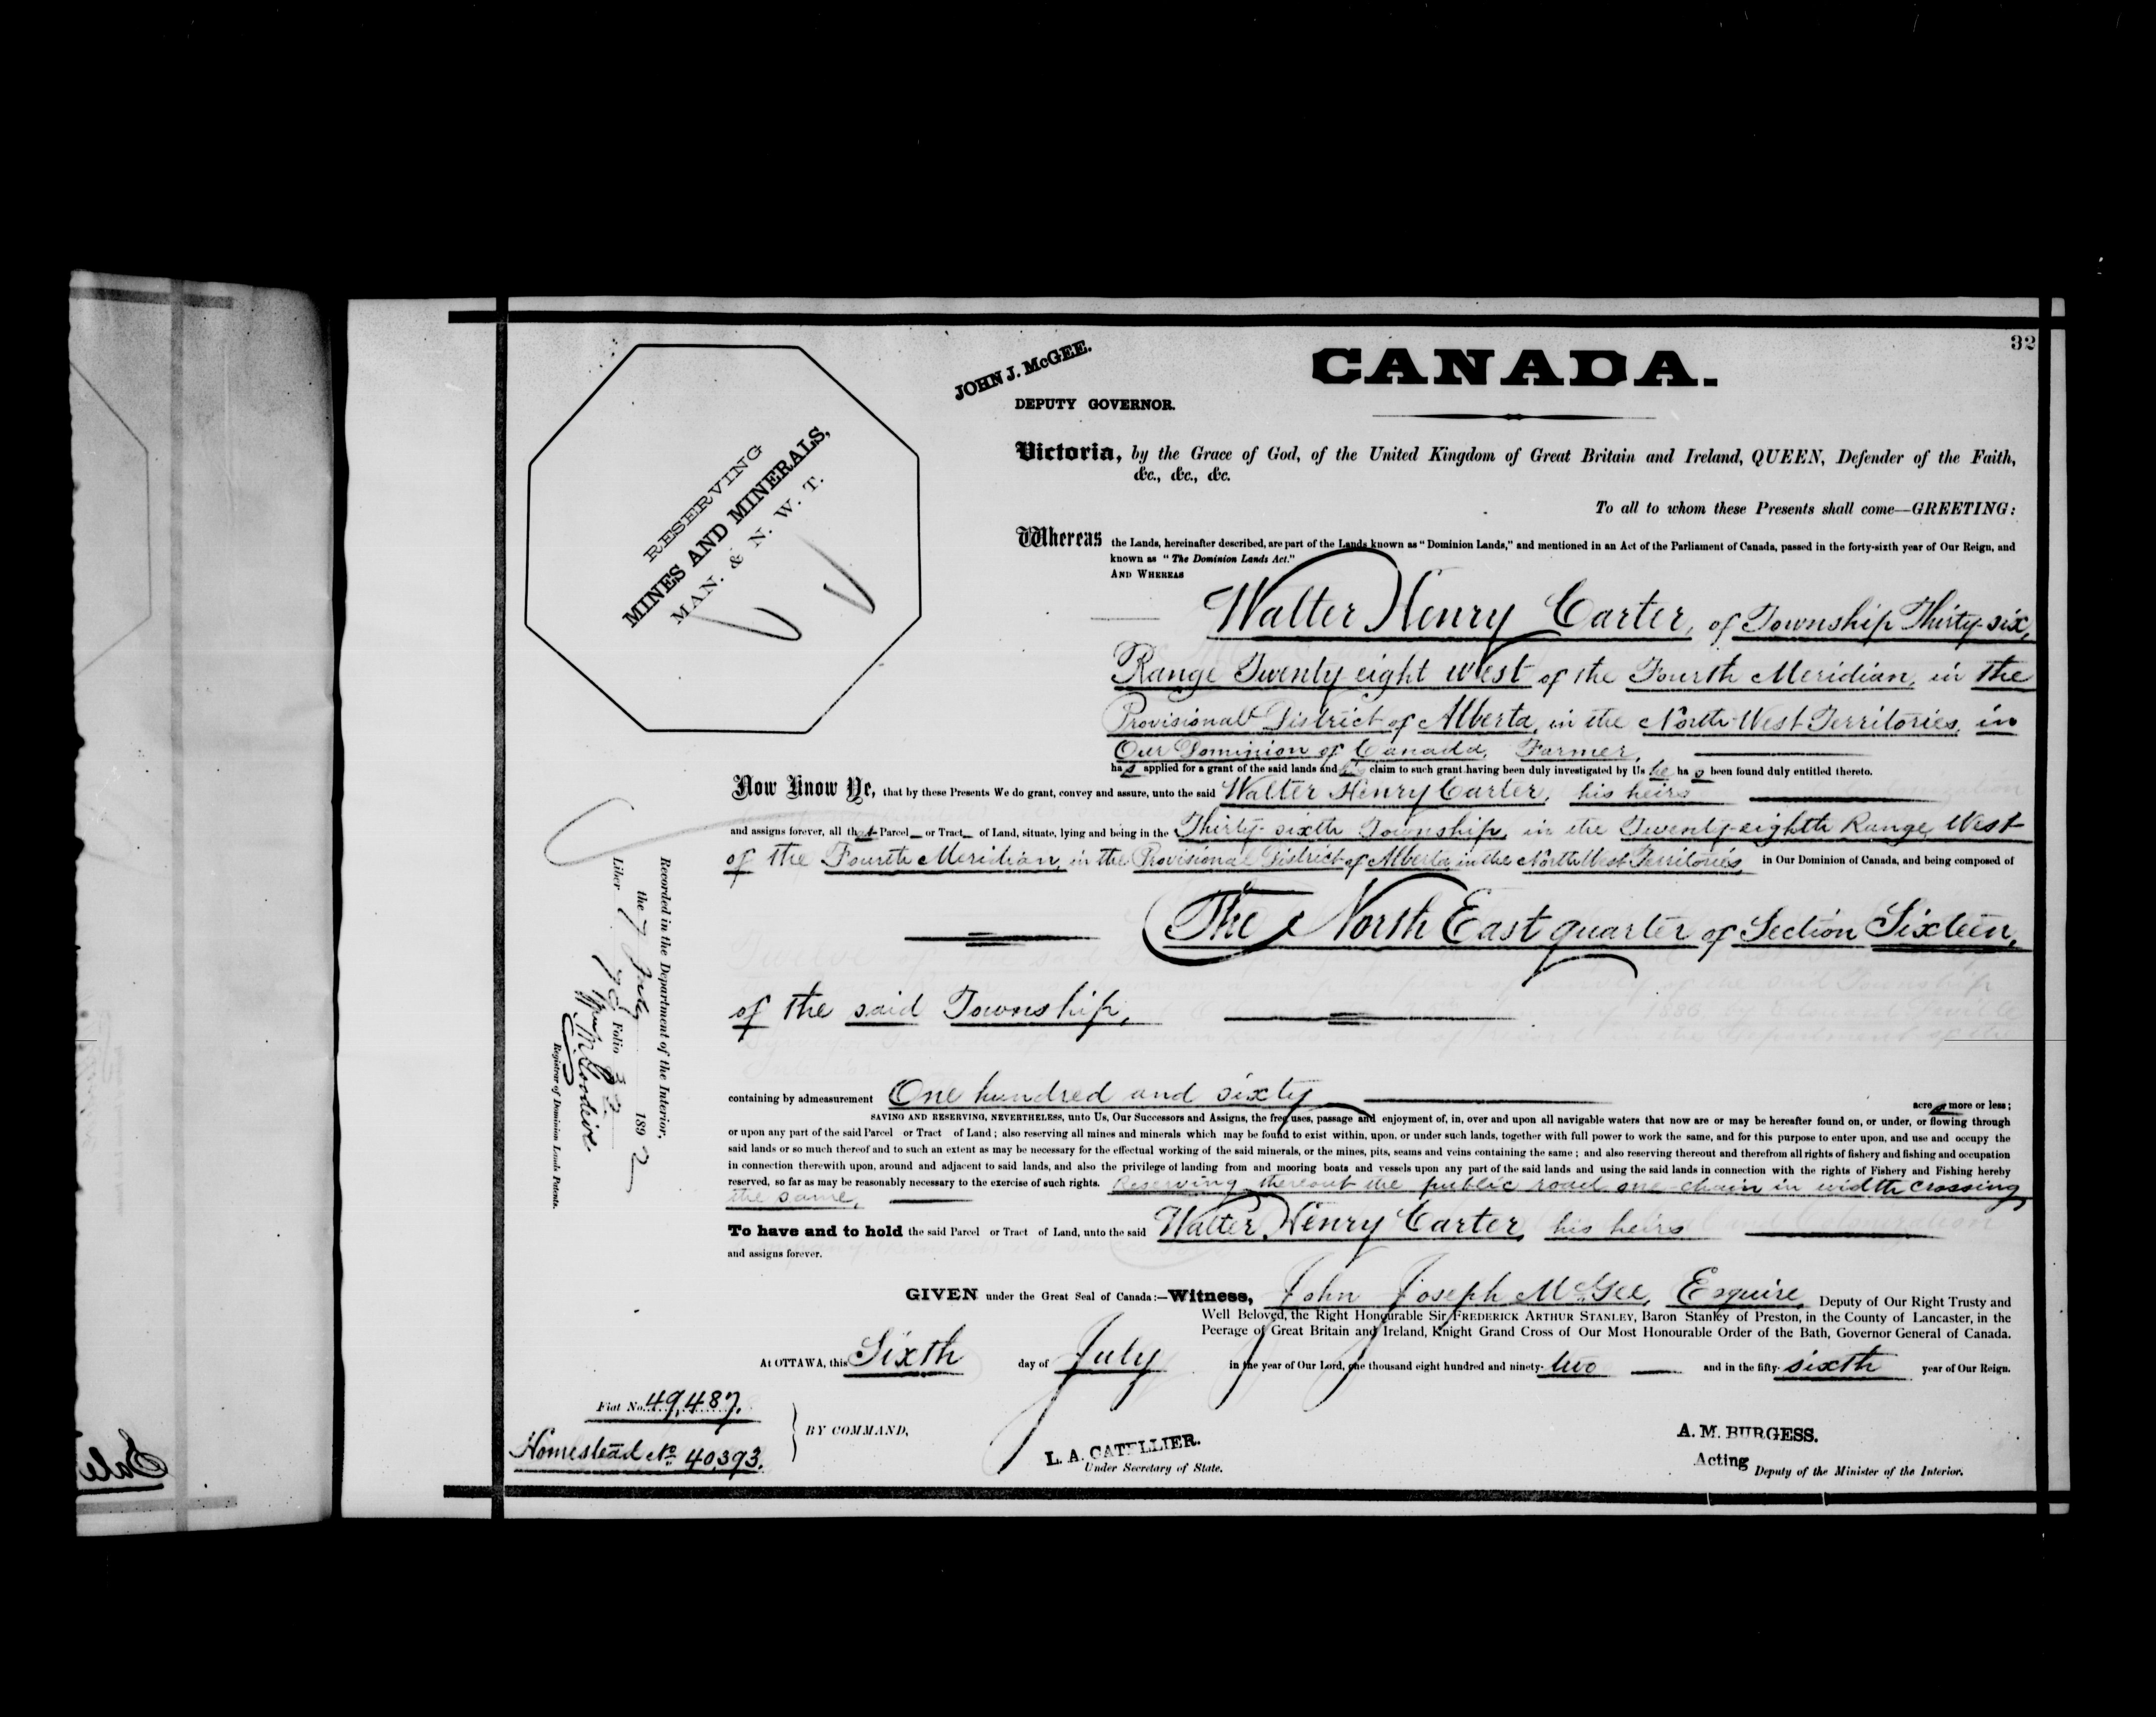 32
CANADA.
JOHN J. McGEE.
DEPUTY GOVERNOR.
RESERVING
MINES AND MINERALS,
MAN. & N. W. T.
Victoria, by the Grace of God, of the United Kingdom of Great Britain and Ireland, QUEEN, Defender of the Faith,
&c., &c., &c.
To all to whom these Presents shall come—GREETING:
Whereas the Lands, hereinafter described, are part of the Lands known as "Dominion Lands," and mentioned in an Act of the Parliament of Canada, passed in the forty-sixth year of Our Reign, and
known as "The Dominion Lands Act."
AND WHEREAS
Walter Henry Carter, of Township Thirty-six,
Range Twenty eight West of the Fourth Meridian, in the
Provisional District of Alberta, in the North-West Territories, in
Our Dominion of Canada, Farmer,
has applied for a grant of the said lands and his claim to such grant having been duly investigated by Us he has been found duly entitled thereto.
Now Know Ye, that by these Presents We do grant, convey and assure, unto the said Walter Henry Carter, his heirs
and assigns forever, all that Parcel or Tract of Land, situate, lying and being in the Thirty-sixth Township, in the Twenty-eighth Range West
of the Fourth Meridian, in the Provisional District of Alberta, in the North West Territories, in Our Dominion of Canada, and being composed of
The North East quarter of Section Sixteen,
of the said Township,
containing by admeasurement One hundred and sixty acres more or less;
SAVING AND RESERVING, NEVERTHELESS, unto Us, Our Successors and Assigns, the free uses, passage and enjoyment of, in, over and upon all navigable waters that now are or may be hereafter found on, or under, or flowing through
or upon any part of the said Parcel or Tract of Land; also reserving all mines and minerals which may be found to exist within, upon, or under such lands, together with full power to work the same, and for this purpose to enter upon, and use and occupy the
said lands or so much thereof and to such an extent as may be necessary for the effectual working of the said minerals, or the mines, pits, seams and veins containing the same; and also reserving thereout and therefrom all rights of fishery and fishing and occupation
in connection therewith upon, around and adjacent to said lands, and also the privilege of landing from and mooring boats and vessels upon any part of the said lands and using the said lands in connection with the rights of Fishery and Fishing hereby
reserved, so far as may be reasonably necessary to the exercise of such rights. Reserving thereout the public road one chain in width crossing
the same,
To have and to hold the said Parcel or Tract of Land, unto the said Walter Henry Carter, his heirs
and assigns forever.
GIVEN under the Great Seal of Canada:—Witness, John Joseph McGee, Esquire, Deputy of Our Right Trusty and
Well Beloved, the Right Honourable Sir FREDERICK ARTHUR STANLEY, Baron Stanley of Preston, in the County of Lancaster, in the
Peerage of Great Britain and Ireland, Knight Grand Cross of Our Most Honourable Order of the Bath, Governor General of Canada.
At OTTAWA, this Sixth day of July in the year of Our Lord, one thousand eight hundred and ninety-two and in the fifty-sixth year of Our Reign.
Fiat No. 49,487.
Homestead No 40,393.
BY COMMAND,
L. A. CATELLIER.
Under Secretary of State.
A. M. BURGESS.
Acting Deputy of the Minister of the Interior.
Recorded in the Department of the Interior,
the 7 July 1892
Liber 78 Folio 32
Registrar of Dominion Lands Patents.